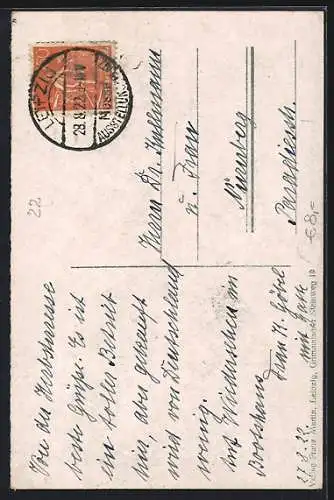 LEIPZIG
28.8.22
MESSE
AUSSTELLUNG
Herrn Dr.
u. Frau
Nürnberg
Von der Herbstmesse
beste Grüße. Es ist
ein toller Betrieb
hier, aber gekauft
wird von Deutschland
wenig.
Auf Wiedersehen im
Bootshaus
mit Gattin
27.8.22.
22
€8,-
Verlag Franz Martin, Leipzig, Grimmaischer Steinweg 10